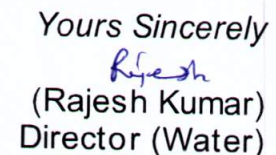 Yours Sincerely
Rajesh
(Rajesh Kumar)
Director (Water)